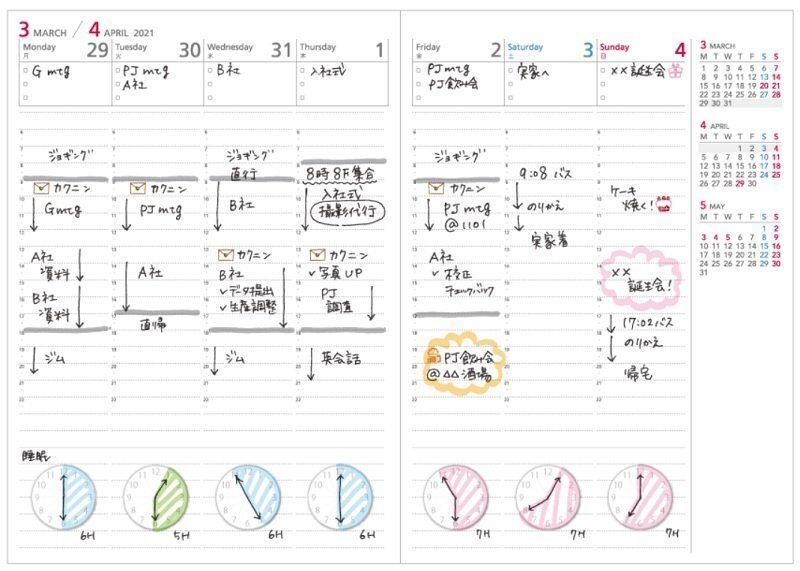 3 MARCH / 4 APRIL 2021
Monday 29
月
Tuesday 30
火
Wednesday 31
水
Thursday 1
木
Friday 2
金
Saturday 3
土
Sunday 4
日
G mtg
PJ mtg
A社
B社
入社式
PJ mtg
PJ飲み会
実家へ
××誕生会
ジョギング
カクニン
Gmtg
A社
資料
B社
資料
ジム
カクニン
PJ mtg
A社
直帰
ジョギング
直行
B社
カクニン
B社
✓データ提出
✓生産調整
ジム
8時 8F集合
入社式
撮影代行
カクニン
✓写真UP
PJ
調査
英会話
ジョギング
カクニン
PJ mtg
@1101
A社
✓校正
チェックバック
PJ飲み会
@△△酒場
9:08 バス
のりかえ
実家着
ケーキ
焼く!
××
誕生会!
17:02バス
のりかえ
帰宅
睡眠
6H
5H
6H
6H
7H
7H
7H
3 MARCH
M T W T F S S
1 2 3 4 5 6 7
8 9 10 11 12 13 14
15 16 17 18 19 20 21
22 23 24 25 26 27 28
29 30 31
4 APRIL
M T W T F S S
1 2 3 4
5 6 7 8 9 10 11
12 13 14 15 16 17 18
19 20 21 22 23 24 25
26 27 28 29 30
5 MAY
M T W T F S S
1 2
3 4 5 6 7 8 9
10 11 12 13 14 15 16
17 18 19 20 21 22 23
24 25 26 27 28 29 30
31